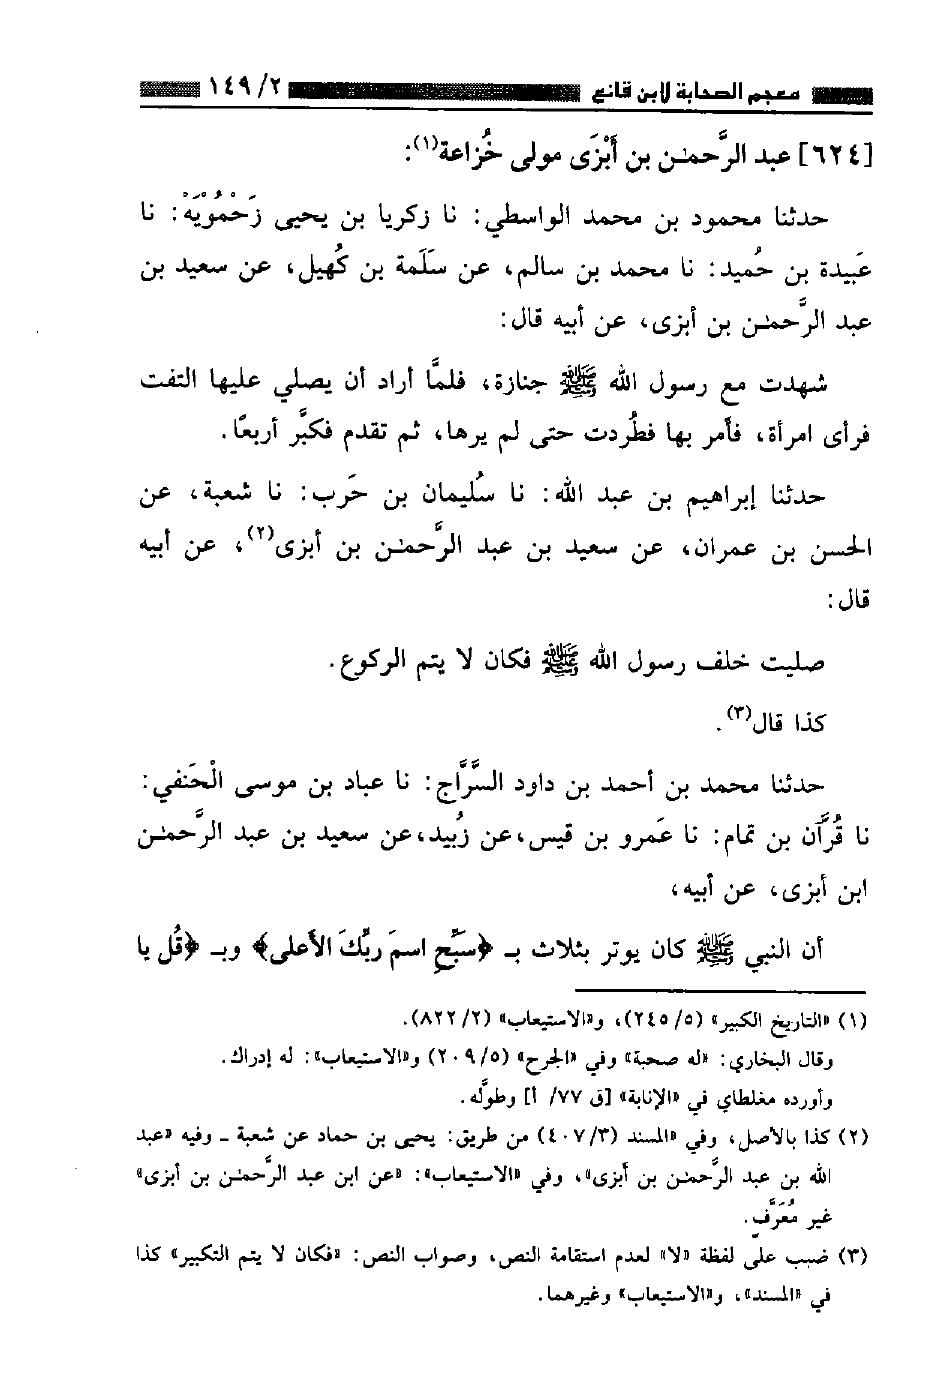 معجم الصحابة لابن قانع ١٤٩/٢
[٦٢٤] عبد الرَّحمٰن بن أَبْزَى مولى خُزاعة(١):
حدثنا محمود بن محمد الواسطي: نا زكريا بن يحيى زَحْمُويَهْ: نا
عَبيدة بن حُميد: نا محمد بن سالم، عن سَلَمة بن كُهيل، عن سعيد بن
عبد الرَّحمٰن بن أبزى، عن أبيه قال:
شهدت مع رسول الله ﷺ جنازة، فلمَّا أراد أن يصلي عليها التفت
فرأى امرأة، فأمر بها فطُردت حتى لم يرها، ثم تقدم فكبَّر أربعًا.
حدثنا إبراهيم بن عبد الله: نا سُليمان بن حَرب: نا شعبة، عن
الحسن بن عمران، عن سعيد بن عبد الرَّحمٰن بن أبزى(٢)، عن أبيه
قال:
صليت خلف رسول الله ﷺ فكان لا يتم الركوع.
كذا قال(٣).
حدثنا محمد بن أحمد بن داود السَّرَّاج: نا عباد بن موسى الْحَنفي:
نا قُرَّان بن تمام: نا عَمرو بن قيس، عن زُبيد، عن سعيد بن عبد الرَّحمٰن
ابن أبزى، عن أبيه،
أن النبي ﷺ كان يوتر بثلاث بـ ﴿سَبِّحِ اسمَ ربِّكَ الأعلى﴾ وبـ ﴿قُل يا
(١) «التاريخ الكبير» (٢٤٥/٥)، و«الاستيعاب» (٨٢٢/٢).
وقال البخاري: «له صحبة» وفي «الجرح» (٢٠٩/٥) و«الاستيعاب»: له إدراك.
وأورده مغلطاي في «الإنابة» [ق ٧٧/ أ] وطوَّله.
(٢) كذا بالأصل، وفي «المسند (٤٠٧/٣) من طريق: يحيى بن حماد عن شعبة ـ وفيه «عبد
الله بن عبد الرَّحمٰن بن أبزى»، وفي «الاستيعاب»: «عن ابن عبد الرَّحمٰن بن أبزى»
غير مُعَرَّفٍ.
(٣) ضبب على لفظة «لا» لعدم استقامة النص، وصواب النص: «فكان لا يتم التكبير» كذا
في «المسند»، و«الاستيعاب» وغيرهما.